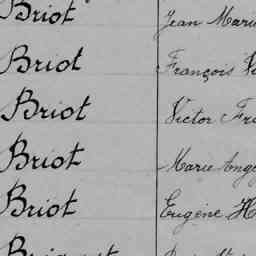 Briot Jean Marie
Briot François
Briot Victor
Briot Marie
Briot Eugène